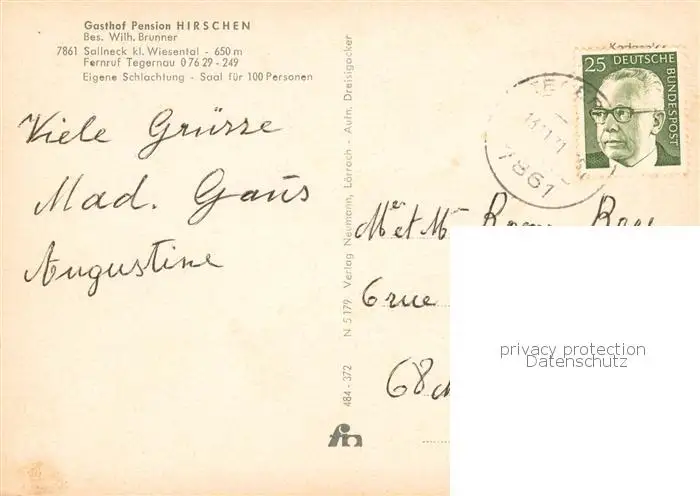 Gasthof Pension HIRSCHEN
Bes. Wilh. Brunner
7861 Sallneck kl. Wiesental - 650 m
Fernruf Tegernau 0 76 29 - 249
Eigene Schlachtung - Saal für 100 Personen
Viele Grüsse
Mad. Gaus
Augustine
484-372 N 5179 Verlag Neumann, Lörrach - Aufn. Dreisigacker
fn
25 DEUTSCHE
BUNDESPOST
7861
Mer et Mme
6 rue
68
privacy protection
Datenschutz